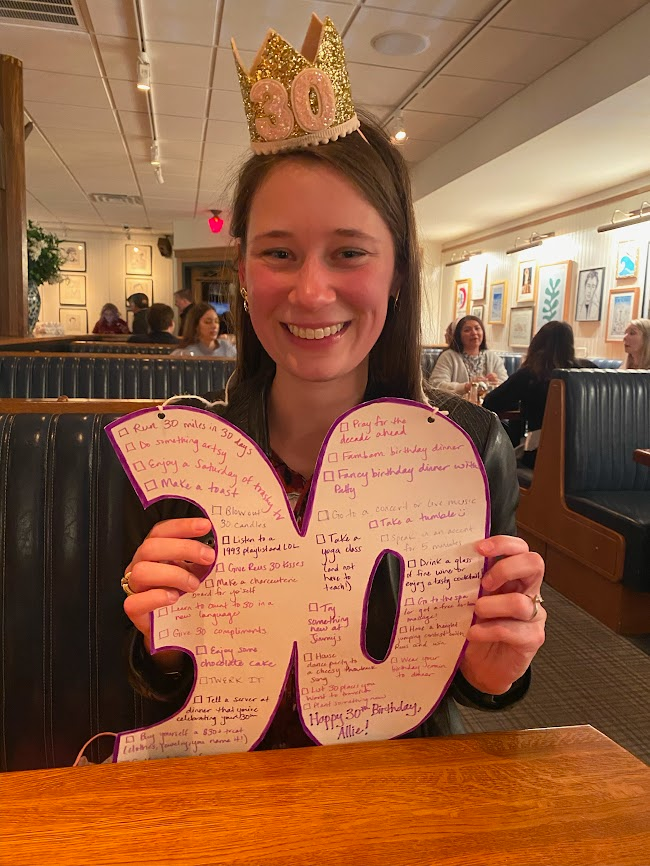 30
☐ Run 30 miles in 30 days
☐ Do something artsy
☐ Enjoy a Saturday of trashy TV
☐ Make a toast
☐ Blow out
30 candles
☐ Listen to a
1993 playlist and LOL
☐ Give Russ 30 kisses
☐ Make a charcuterie
board for yourself
☐ Learn to count to 30 in a
new language
☐ Give 30 compliments
☐ Enjoy some
chocolate cake
☐ TWERK IT
☐ Tell a server at
dinner that you're
celebrating your 30th
☐ Buy yourself a $30+ treat
(clothes, jewelry, you name it!)
☐ Pray for the
decade ahead
☐ Fambam birthday dinner
☐ Fancy birthday dinner with
Patty
☐ Go to a concert or live music
☐ Take a tumble
☐ Speak in an accent
for 5 minutes
☐ Take a
yoga class
(and not
have to
teach!)
☐ Drink a glass
of fine wine or
enjoy a tasty cocktail
☐ Go to the spa
massage!
☐ Try
something
new at
Jimmy's
☐ Have a
jumping contest
and win
☐ House
dance party to
a cheesy
song
☐ Wear your
birthday crown
to dinner
☐ List 30 places you
want to
☐ Plant something new
Happy 30th Birthday,
Allie!